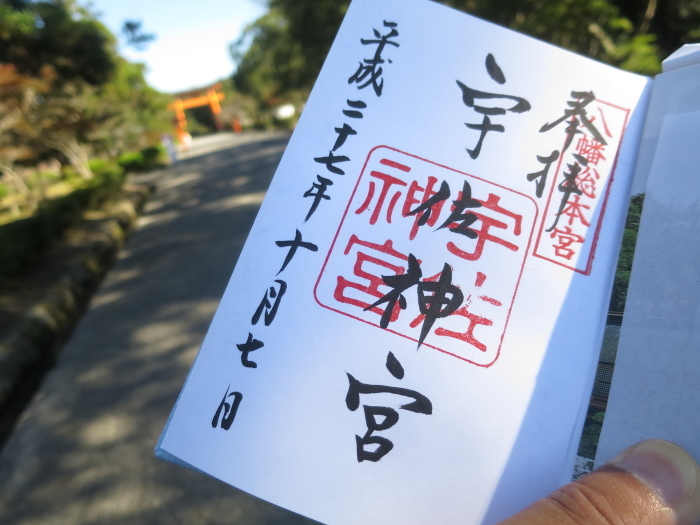 奉拝
八幡総本宮
宇佐神宮
宇佐
神宮
平成二十七年十月七日